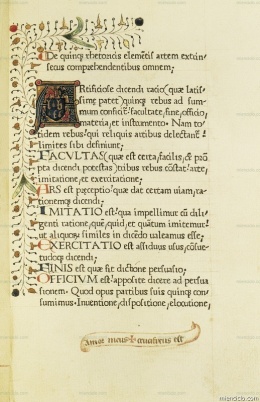 De quinqȝ rhetoricis elementis artem extrin
secus comprehendentibus omnem;
ARtifidose dicendi ratio (quæ latis
sime patet) quinqȝ rebus ad sum
mum conficit: facultate, fine, officio,
materia, et instrumento. Nam to
tidem rebus: qui reliquis artibus delectant:
limites sibi definiunt;
FACVLTAS (quæ est certa, facilis, &
pta dicendi potestas) tribus rebus constat: arte,
imitatione, et exercitatione;
ARS est præceptio: quæ dat certam uiam, ra
tionemqȝ dicendi;
IMITATIO est: qua impellimur cū dili
genti ratione, quē, quid, et quatum imitemur:
ut aliquoȝ similes in dicēdo ualeamus esse;
EXERCITATIO est assiduus usus, cōsue
tudoqȝ dicendi;
FINIS est quæ fit dictione persuasio;
OFFICIVM est: apposite dicere ad persua
sionem. Quod opus partibus suis quinqȝ con
sumimus. Inuentione, dispositione, elocutione,
Amor meus
est
mienciclo.com
© mienciclo.com